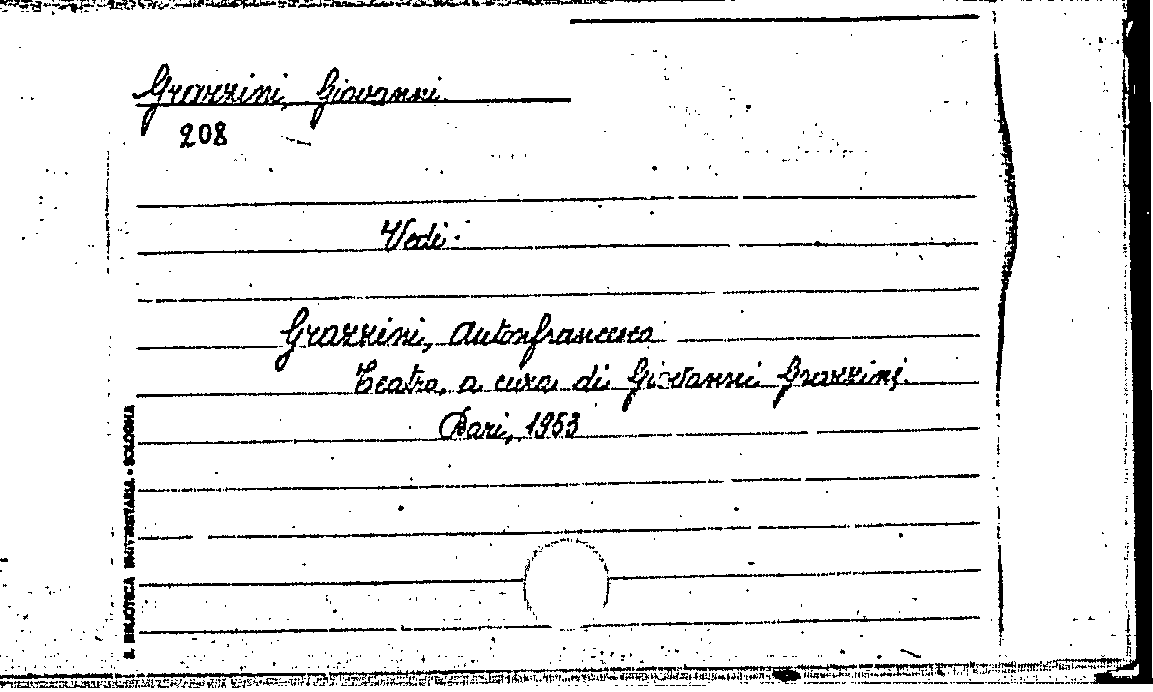 Grazzini, Giovanni
208
Vedi:
Grazzini, Antonfrancesco
Teatro, a cura di Giovanni Grazzini.
Bari, 1953
B. BIBLIOTECA UNIVERSITARIA - BOLOGNA